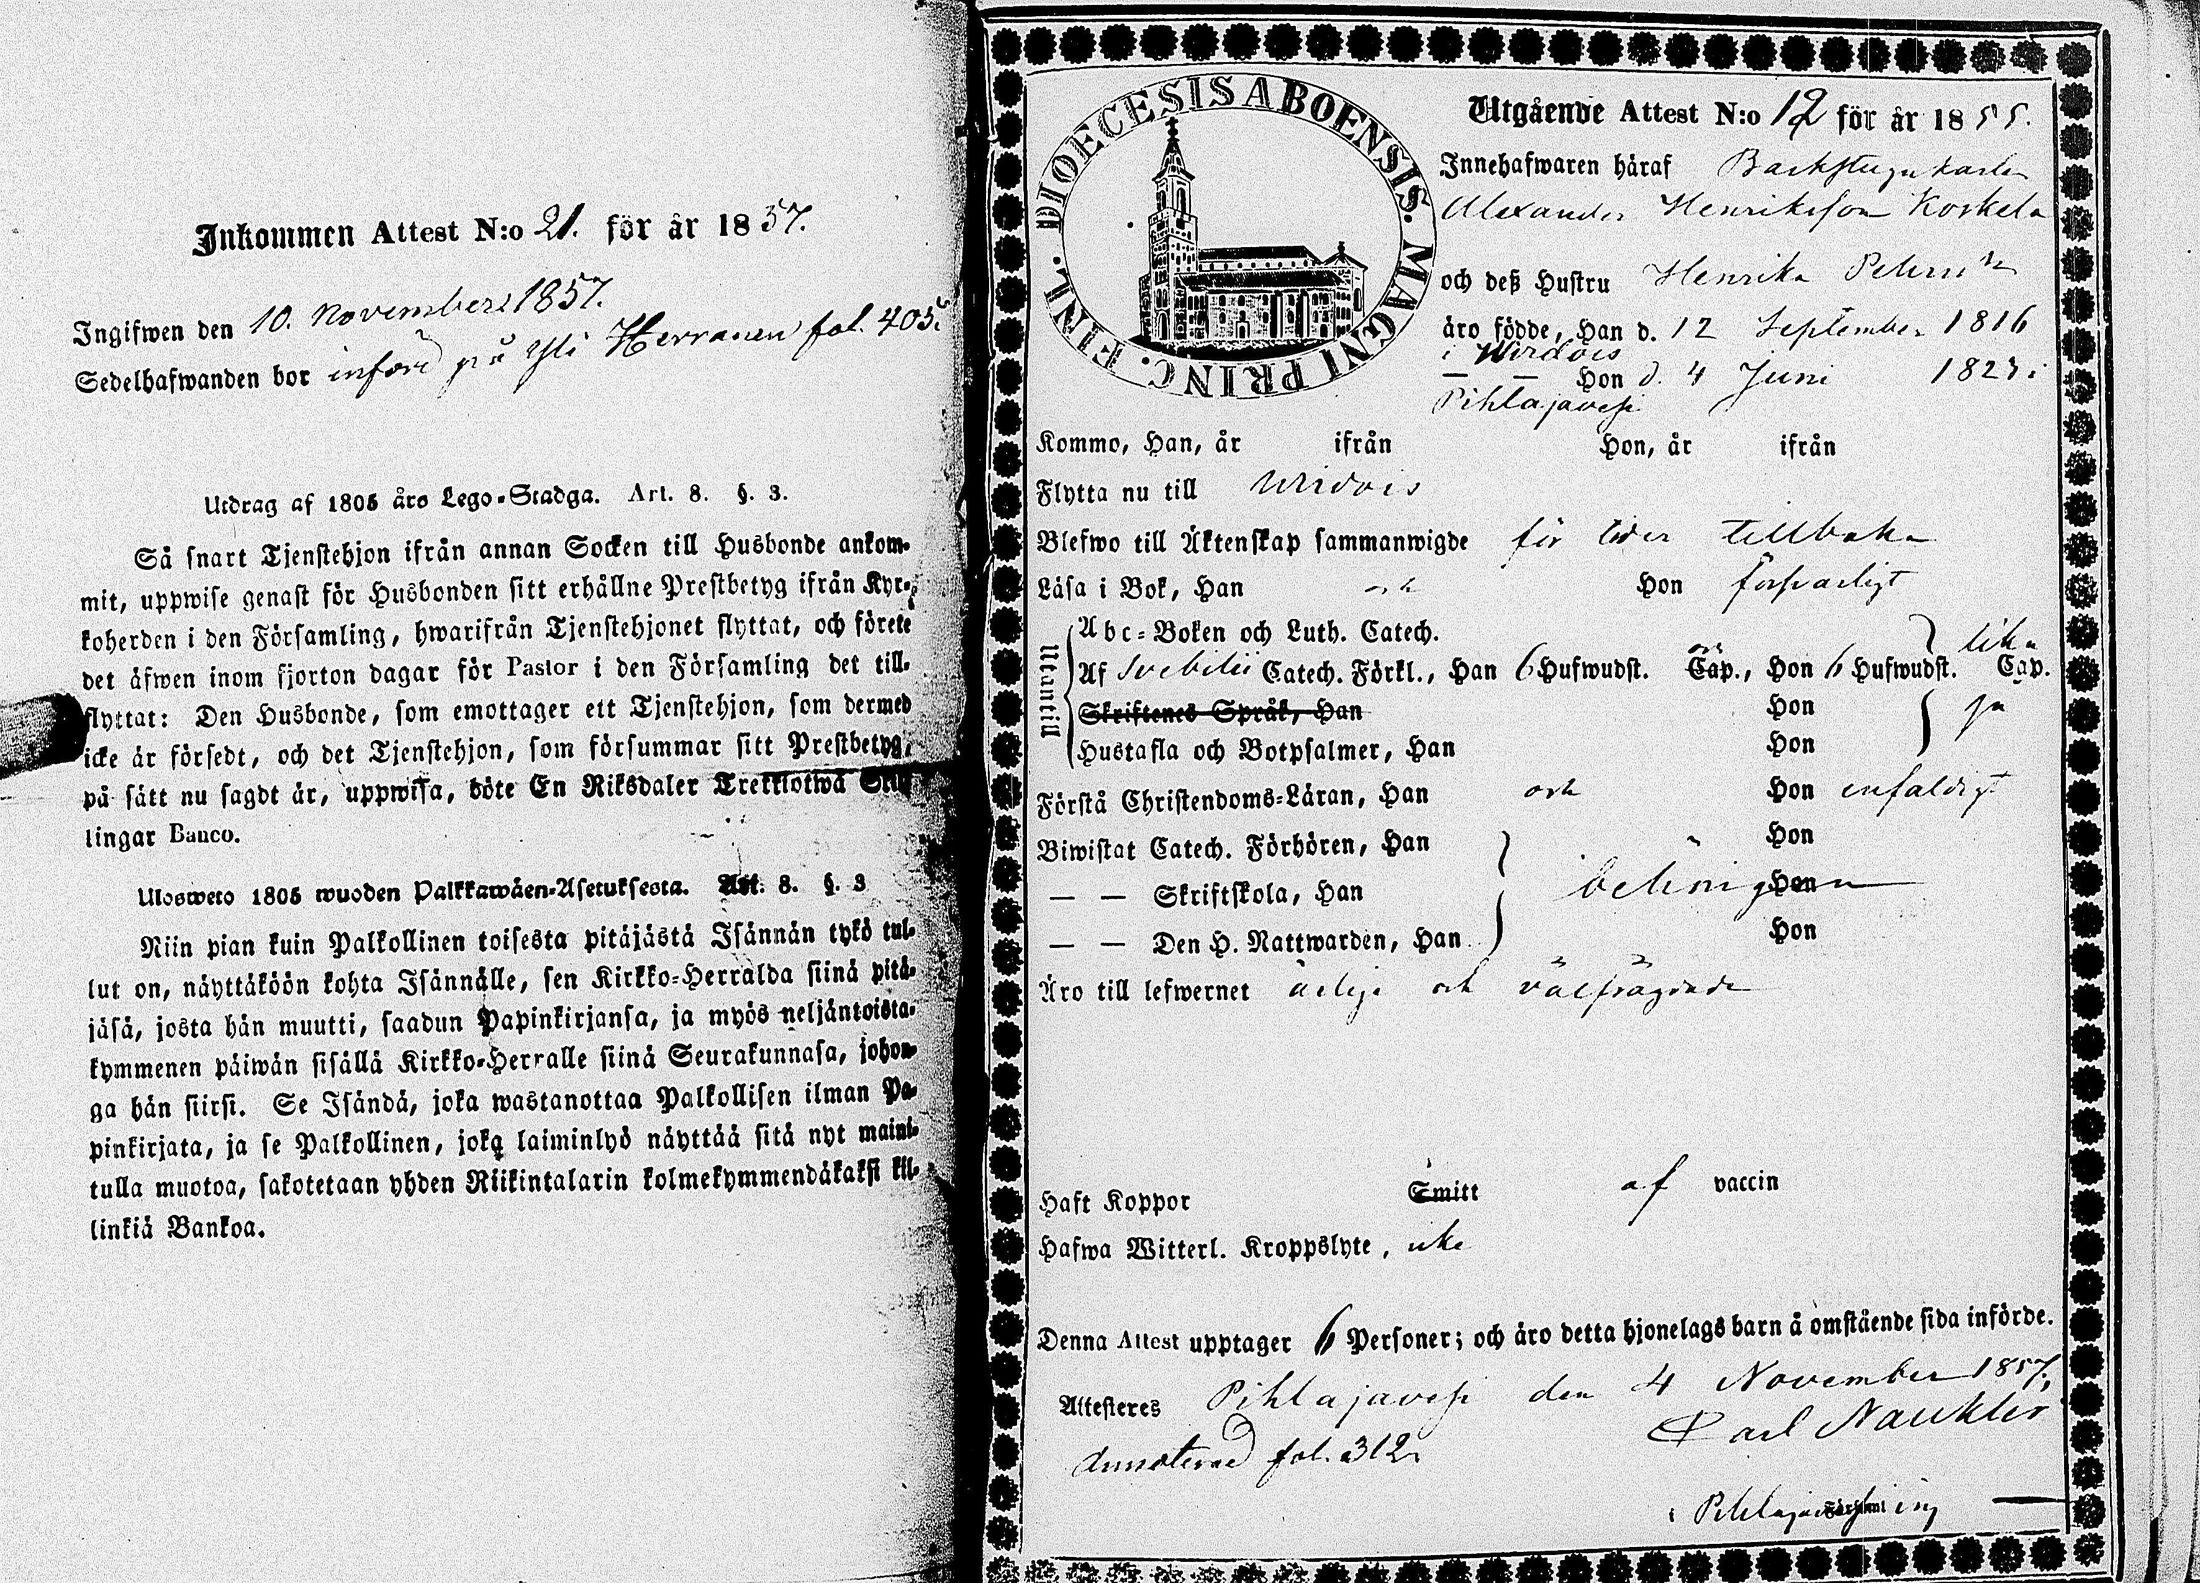 Inkommen Attest N:o 21. för år 1857.
Ingifwen den 10. November 1857.
Sedelhafwanden bor införd på Yli Herranen fol. 405.
Utdrag af 1805 års Lego-Stadga. Art. 8. §. 3.
Så snart Tjenstehjon ifrån annan Socken till Husbonde ankom-
mit, uppwise genast för Husbonden sitt erhållne Prestbetyg ifrån Kyr-
koherden i den Församling, hwarifrån Tjenstehjonet flyttat, och förete
det äfwen inom fjorton dagar för Pastor i den Församling det till-
flyttat: Den Husbonde, som emottager ett Tjenstehjon, som dermed
icke är försedt, och det Tjenstehjon, som försummar sitt Prestbetyg,
på sätt nu sagdt är, uppwisa, böte En Riksdaler Trettiotwå Skil-
lingar Banco.
Ulosweto 1805 wuoden Palkkawäen-Asetuksesta. Art. 8. §. 3
Niin pian kuin Palkollinen toisesta pitäjästä Isännän tykö tul-
lut on, näyttäköön kohta Isännälle, sen Kirkko-Herralda siinä pitä-
jäsä, josta hän muutti, saadun Papinkirjansa, ja myös neljäntoista-
kymmenen päiwän sisällä Kirkko-Herralle siinä Seurakunnasa, johon-
ga hän siirsi. Se Isändä, joka wastanottaa Palkollisen ilman Pa-
pinkirjata, ja se Palkollinen, joka laiminlyö näyttää sitä nyt maini-
tulla muotoa, sakotetaan yhden Riikintalarin kolmekymmendäkaksi kil-
linkiä Bankoa.
DIOECESIS ABOENSIS. MAGNI PRINC. FINL.
Utgående Attest N:o 12 för år 1855.
Innehafwaren häraf Backstugukarlen
Alexander Henriksson Koskela
och deß Hustru Henrika
äro födde, Han d. 12 September 1816
i Wirdois
— — Hon d. 4 Juni 182 i
Pihlajavesi
Kommo, Han, år ifrån Hon, år ifrån
Flytta nu till Wirdois
Blefwo till Äktenskap sammanwigde för tider tillbaka
Läsa i Bok, Han och Hon försvarligt
Utantill
Abc-Boken och Luth. Catech.
Af Svebilii Catech. Förkl., Han 6 Hufwudst. och Cap., Hon 6 Hufwudst. Cap. lika
Skriftenes Språk, Han Hon
Hustafla och Botpsalmer, Han Hon ja
Förstå Christendoms-Läran, Han och Hon enfaldigt
Biwistat Catech. Förhören, Han Hon
— — Skriftskola, Han Hon behörigen
— — Den H. Nattwarden, Han Hon
Äro till lefwernet ärlige och välfrägdade
Haft Koppor Smitt af vaccin
Hafwa Witterl. Kroppslyte, icke
Denna Attest upptager 6 Personer; och äro detta hjonelags barn å omstående sida införde.
Attesteres Pihlajavesi den 4 November 1857.
Carl Naukler
Annoterad fol. 312.
i Pihlajavesi